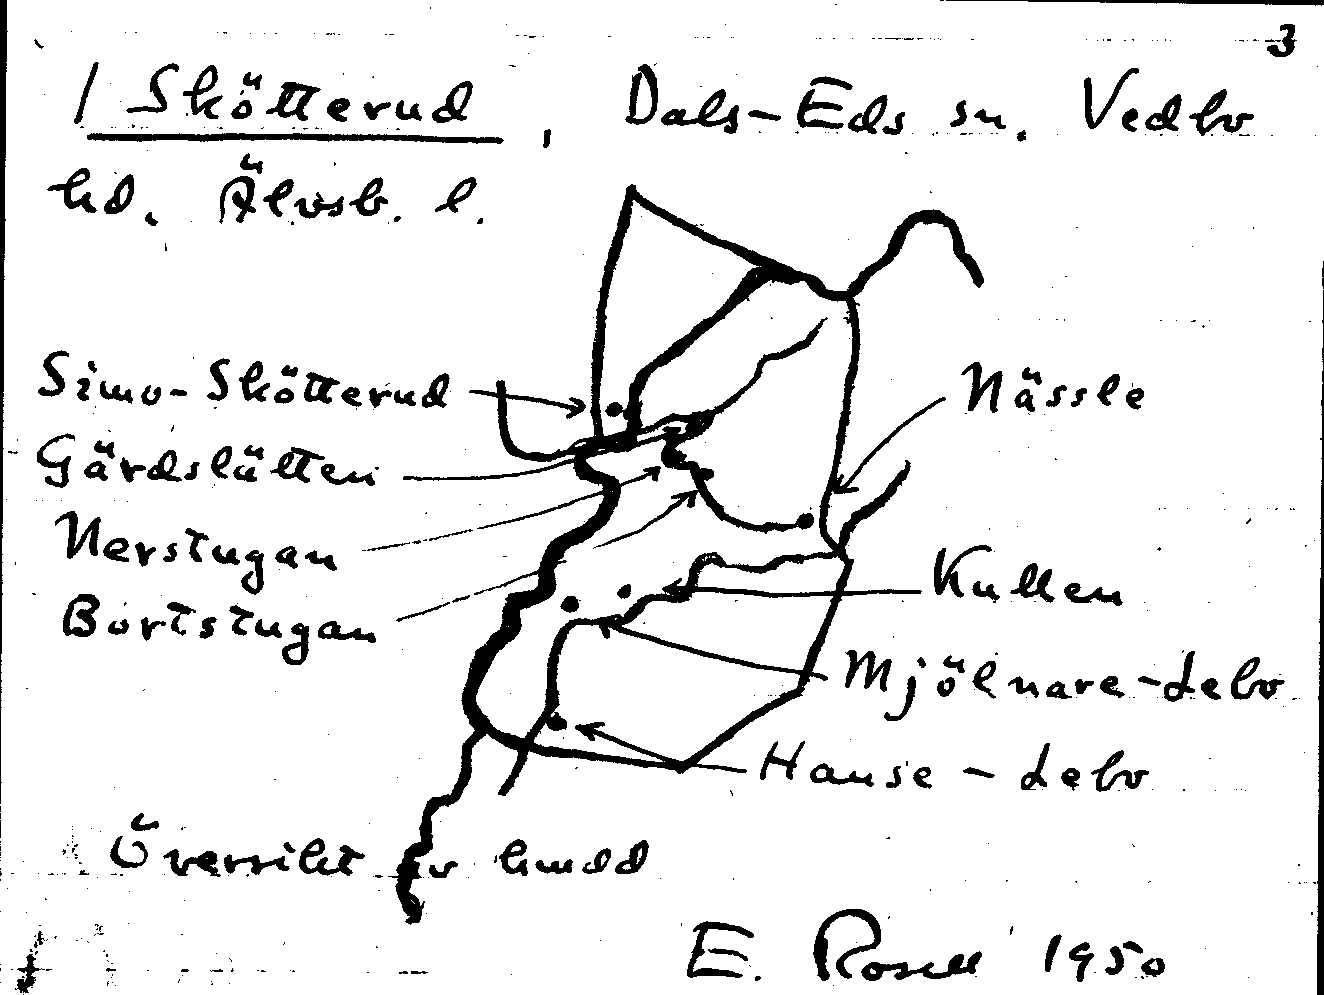 3
1 Skötterud, Dals-Eds sn. Vedbo
hd. Älvsb. l.
Simo-Skötterud
Nässle
Gärdslätten
Nerstugan
Kullen
Bortstugan
Mjölnare-Lebo
Hanse-Lebo
Översikt av hmdd
E. Rosell 1950